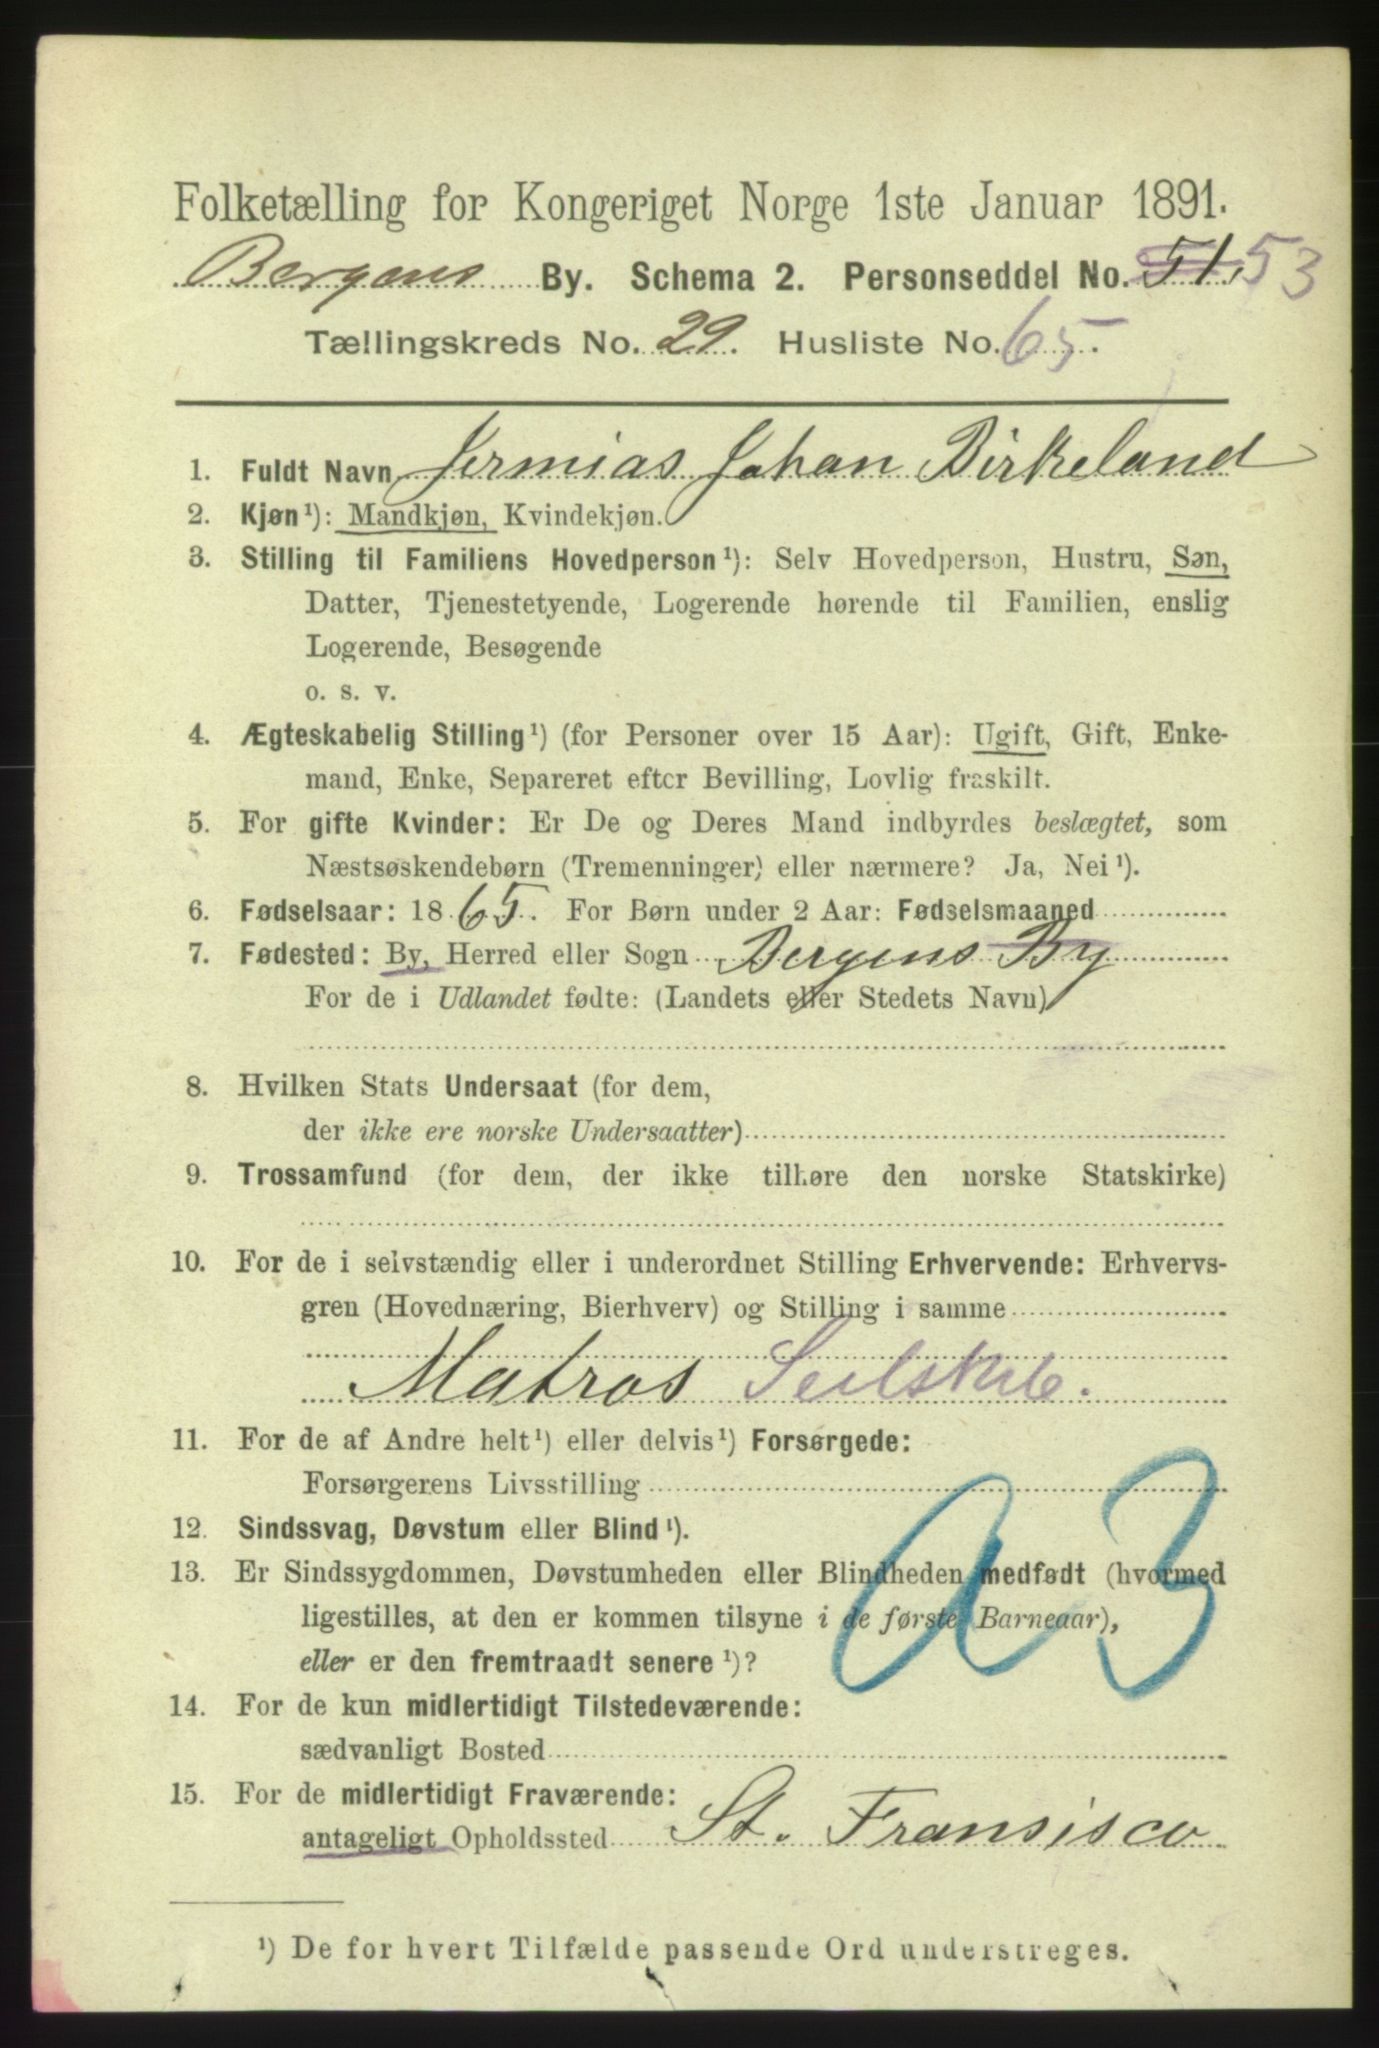 Folketælling for Kongeriget Norge 1ste Januar 1891.
Bergens By. Schema 2. Personseddel No. 51. 53
Tællingskreds No. 29. Husliste No. 65.
1. Fuldt Navn Jermias Johan Birkeland
2. Kjøn¹): Mandkjøn, Kvindekjøn.
3. Stilling til Familiens Hovedperson¹): Selv Hovedperson, Hustru, Søn,
Datter, Tjenestetyende, Logerende hørende til Familien, enslig
Logerende, Besøgende
o. s. v.
4. Ægteskabelig Stilling¹) (for Personer over 15 Aar): Ugift, Gift, Enke-
mand, Enke, Separeret efter Bevilling, Lovlig fraskilt.
5. For gifte Kvinder: Er De og Deres Mand indbyrdes beslægtet, som
Næstsøskendebørn (Tremenninger) eller nærmere? Ja, Nei¹).
6. Fødselsaar: 1865. For Børn under 2 Aar: Fødselsmaaned
7. Fødested: By, Herred eller Sogn Bergens By
For de i Udlandet fødte: (Landets eller Stedets Navn)
8. Hvilken Stats Undersaat (for dem,
der ikke ere norske Undersaatter)
9. Trossamfund (for dem, der ikke tilhøre den norske Statskirke)
10. For de i selvstændig eller i underordnet Stilling Erhvervende: Erhvervs-
gren (Hovednæring, Bierhverv) og Stilling i samme
Matros Seilskib.
11. For de af Andre helt¹) eller delvis¹) Forsørgede:
Forsørgerens Livsstilling
12. Sindssvag, Døvstum eller Blind¹).
13. Er Sindssygdommen, Døvstumheden eller Blindheden medfødt (hvormed
ligestilles, at den er kommen tilsyne i de første Barneaar),
eller er den fremtraadt senere¹)?
a3
14. For de kun midlertidigt Tilstedeværende:
sædvanligt Bosted
15. For de midlertidigt Fraværende:
antageligt Opholdssted St. Fransisco
¹) De for hvert Tilfælde passende Ord understreges.